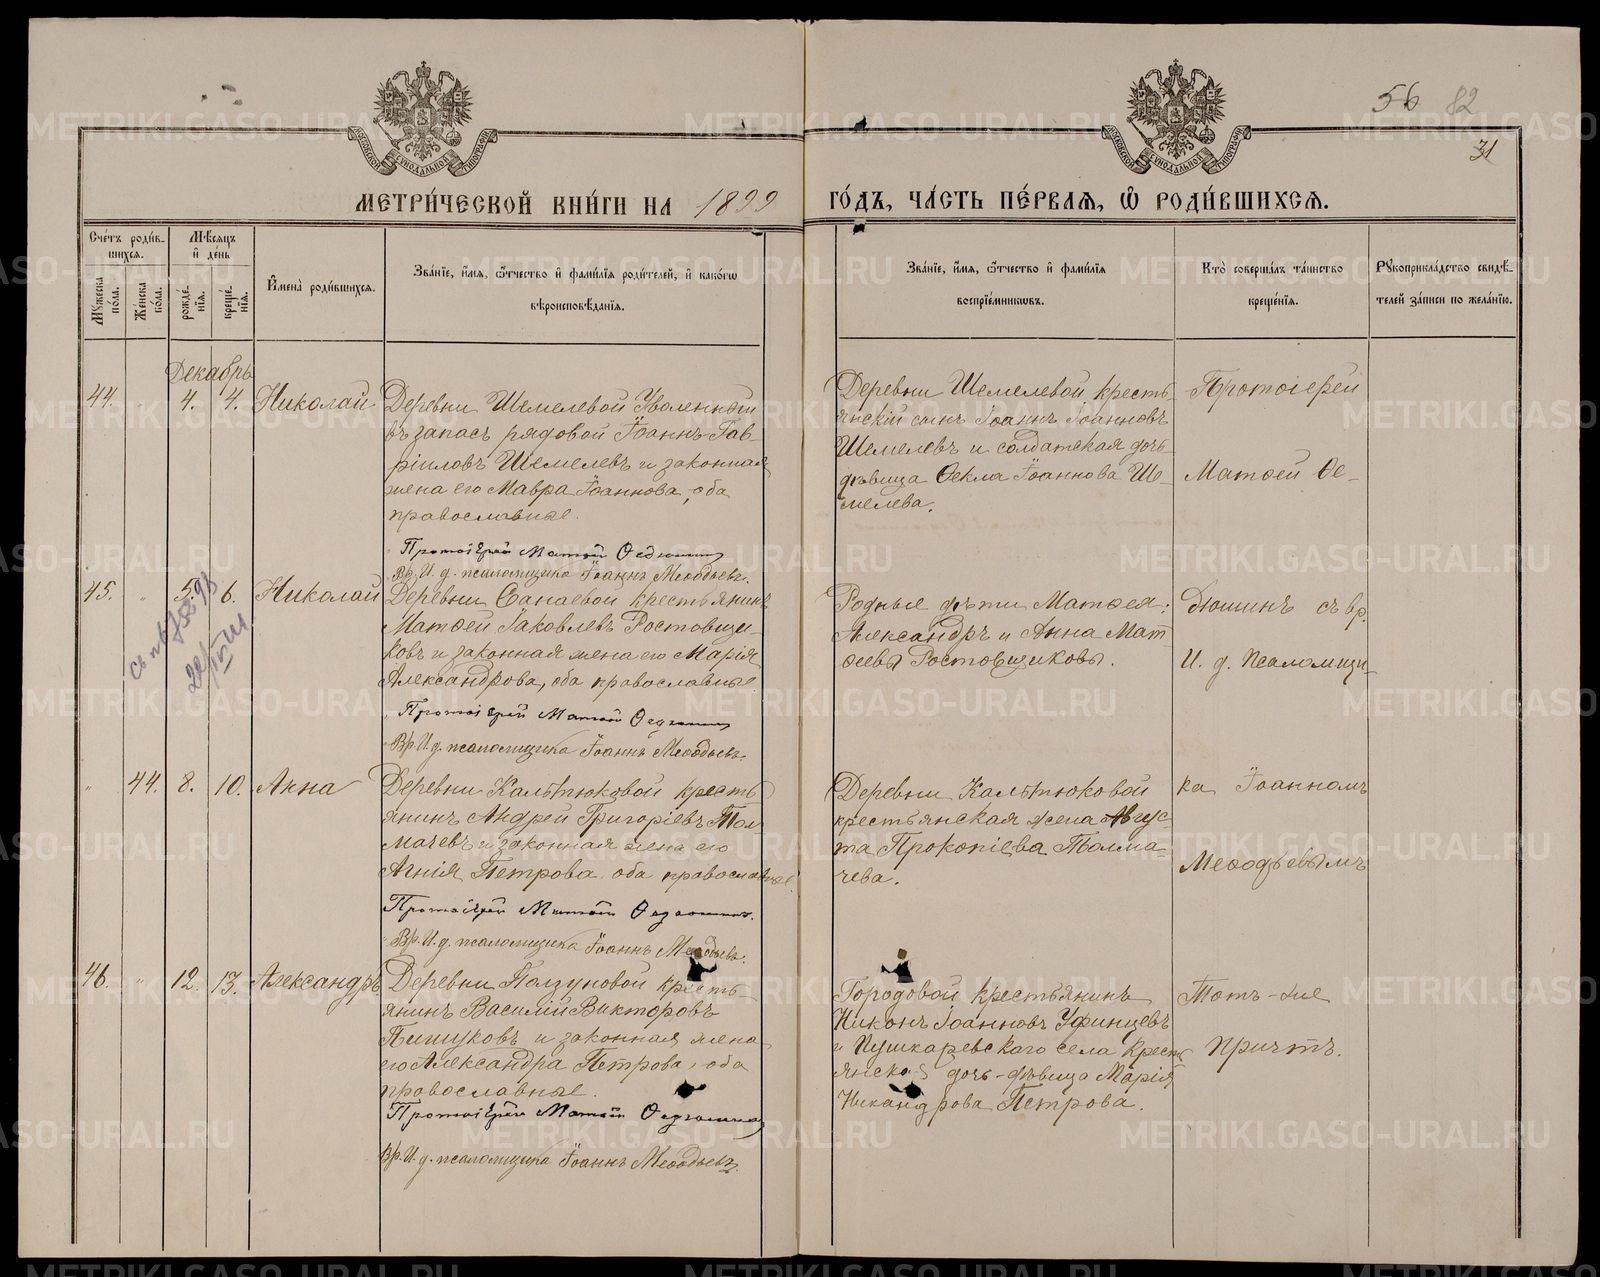 56 82
31
МОСКОВСКОЙ СУНОДАЛЬНОЙ ТИПОГРАФІИ
МОСКОВСКОЙ СУНОДАЛЬНОЙ ТИПОГРАФІИ
МЕТРИ́ЧЕСКОЙ КНИ́ГИ НА 1899 ГО́ДЪ, ЧА́СТЬ ПЕ́РВАЯ, Ѡ҆ РОДИ́ВШИХСЯ.
Сче́тъ роди́в-
шихся.
Мꙋжеска по́ла.
Же́нска по́ла.
Мѣ́сяцъ
и҆ де́нь
рожде́-
нїя.
креще́-
нїя.
И҆мена̀ роди́вшихся.
Зва́нїе, и҆́мя, ѻ҆́тчество и҆ фами́лїя роди́телей, и҆ како́гѡ
вѣроисповѣ́данїя.
Зва́нїе, и҆́мя, ѻ҆́тчество и҆ фами́лїя
воспрїе́мниковъ.
Кто̀ соверша́лъ та́инство
креще́нїя.
Рꙋкоприкла́дство свидѣ́-
телей за́писи по жела́нїю.
Декабрь
44. " 4. 4. Николай
Деревни Шемелевой Уволенный
въ запасъ рядовой Іоаннъ Гав-
ріиловъ Шемелевъ и законная
жена его Мавра Іоаннова, оба
православные.
Протоіерей Матѳей Ѳедюшинъ
Вр. И. д. псаломщика Іоаннъ Меѳодьевъ.
Деревни Шемелевой кресть
янскій сынъ Іоаннъ Іоанновъ
Шемелевъ и солдатская дочь
дѣвица Ѳекла Іоаннова Ше-
мелева.
Протоіерей
Матѳей Ѳе-
45. " 5. 6. Николай
Деревни Санаевой крестьянинъ
Матѳей Іаковлевъ Ростовщи-
ковъ и законная жена его Марія
Александрова, оба православные
Протоіерей Матѳей Ѳедюшинъ
Вр. И. д. псаломщика Іоаннъ Меѳодьевъ.
Родные дѣти Матѳея:
Александръ и Анна Мат
ѳеевы Ростовщиковы.
дюшинъ съ вр.
И. д. Псаломщи-
" 44. 8. 10. Анна
Деревни Кальтюковой кресть
янинъ Андрей Григоріевъ Тол
мачевъ и законная жена его
Агнія Петрова, оба православные
Протоіерей Матѳей Ѳедюшинъ.
Вр. И. д. псаломщика Іоаннъ Меѳодьевъ.
Деревни Кальтюковой
крестьянская жена Авгус-
та Прокопіева Толма-
чева.
ка Іоанномъ
Меѳодьевымъ
46. " 12. 13. Александръ
Деревни Ползуновой кресть-
янинъ Василій Викторовъ
и законная жена
его Александра Петрова, оба
православные.
Протоіерей Матѳей Ѳедюшинъ
Вр. И. д. псаломщика Іоаннъ Меѳодьевъ.
Городовой крестьянинъ
Никонъ Іоанновъ Уфинцевъ
и Пушкаревскаго села крест
янская дочь-дѣвица Марія
Никандрова Петрова.
Тотъ-же
Причтъ.
METRIKI.GASO-URAL.RU